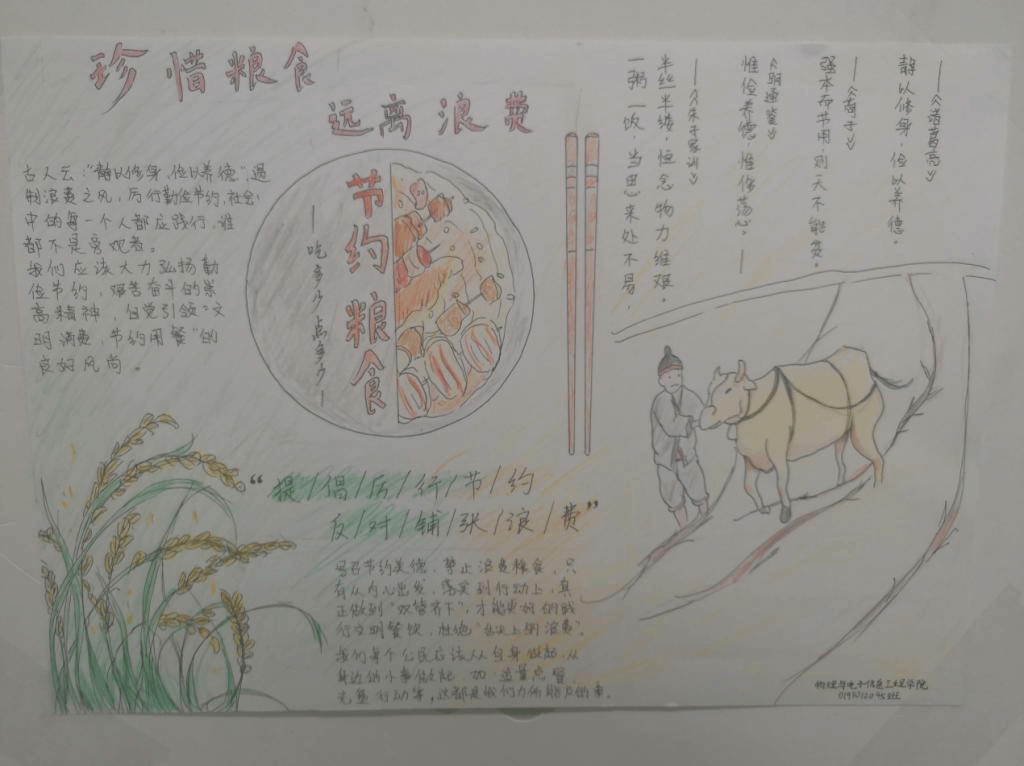 珍惜粮食
远离浪费
古人云："静以修身,俭以养德",遏
制浪费之风，厉行勤俭节约,社会
中的每一个人都应践行,谁
都不是旁观者。
我们应该大力弘扬勤
俭节约，艰苦奋斗的崇
高精神，自觉引领"文
明消费，节约用餐"的
良好风尚。
节约粮食
—吃多少，点多少—
——《诸葛亮》
静以修身，俭以养德。
——《荀子》
强本而节用，则天不能贫。
惟俭养德，惟侈荡心。——
——《朱子家训》
半丝半缕，恒念物力维艰。
一粥一饭，当思来处不易，
"提/倡/厉/行/节/约
反/对/铺/张/浪/费"
节约美德，禁止浪费粮食，只
有从内心出发，落实到行动上，真
正做到"双管齐下"，才能更好的践
行文明餐饮，杜绝"舌尖上的浪费"。
我们每个公民应该从自身做起，从
身边的小事做起，如：适量点餐，
光盘行动等,这都是我们力所能及的事。
物理与电子信息工程学院